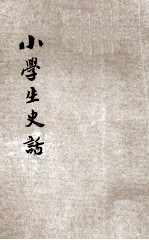 小學生史話